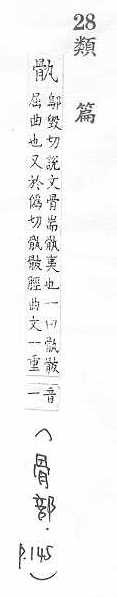 28
類篇
骫
鄔毀切說文骨耑骫奊也一曰骫骳
屈曲也又於僞切骫骳脛曲文一重
音
一
(骨部. p.145)